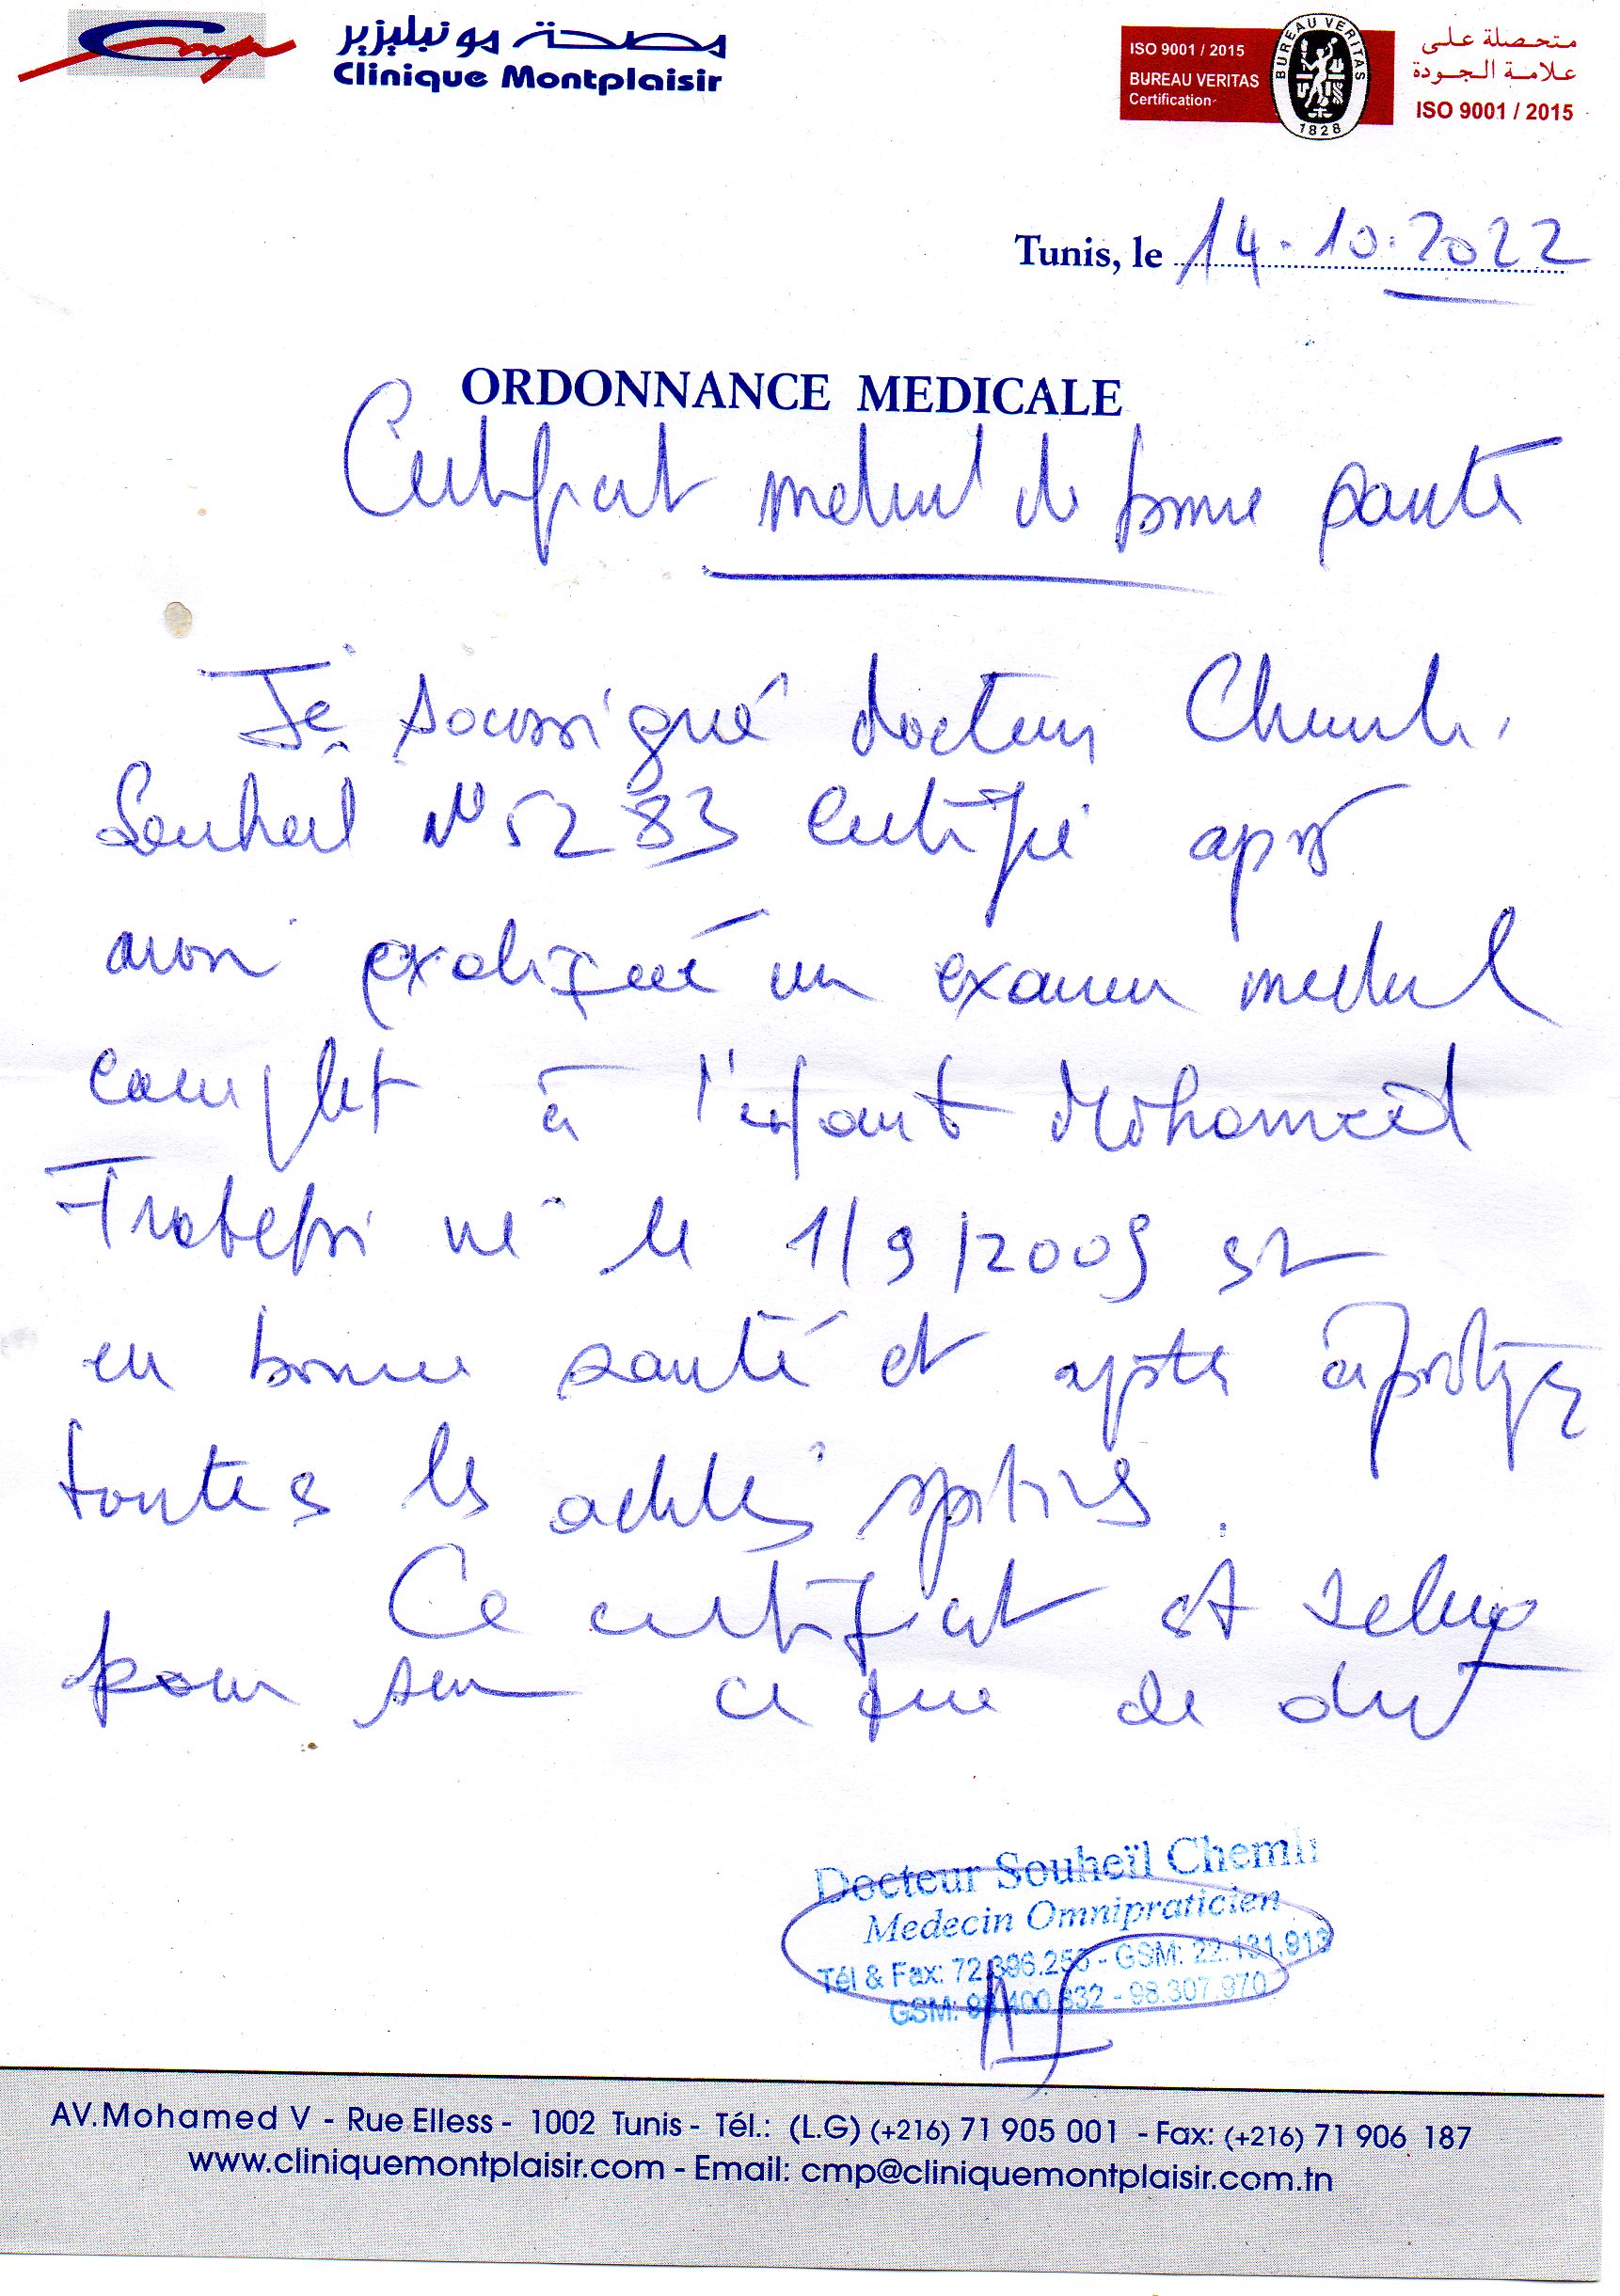 Cmp
مصحة مونبليزير
Clinique Montplaisir
ISO 9001 / 2015
BUREAU VERITAS
Certification
BUREAU VERITAS
1828
متحصلة على
علامة الجودة
ISO 9001 / 2015
Tunis, le 14.10.2022
ORDONNANCE MEDICALE
Certificat medical de bonne santé
Je soussigné docteur Chemli
Souheil N° 5283 certifie après
avoir pratiqué un examen medical
complet à l'enfant Mohamed
Trabelsi né le 1/9/2009 est
en bonne santé et apte à pratiquer
toutes les activités sportives.
Ce certificat est délivré
pour servir ce que de droit
Docteur Souheïl Chemli
Medecin Omnipraticien
Tél & Fax: 72.396.256 - GSM: 22.131.913
GSM: 98.307.970
AV.Mohamed V - Rue Elless - 1002 Tunis - Tél.: (L.G) (+216) 71 905 001 - Fax: (+216) 71 906 187
www.cliniquemontplaisir.com - Email: cmp@cliniquemontplaisir.com.tn